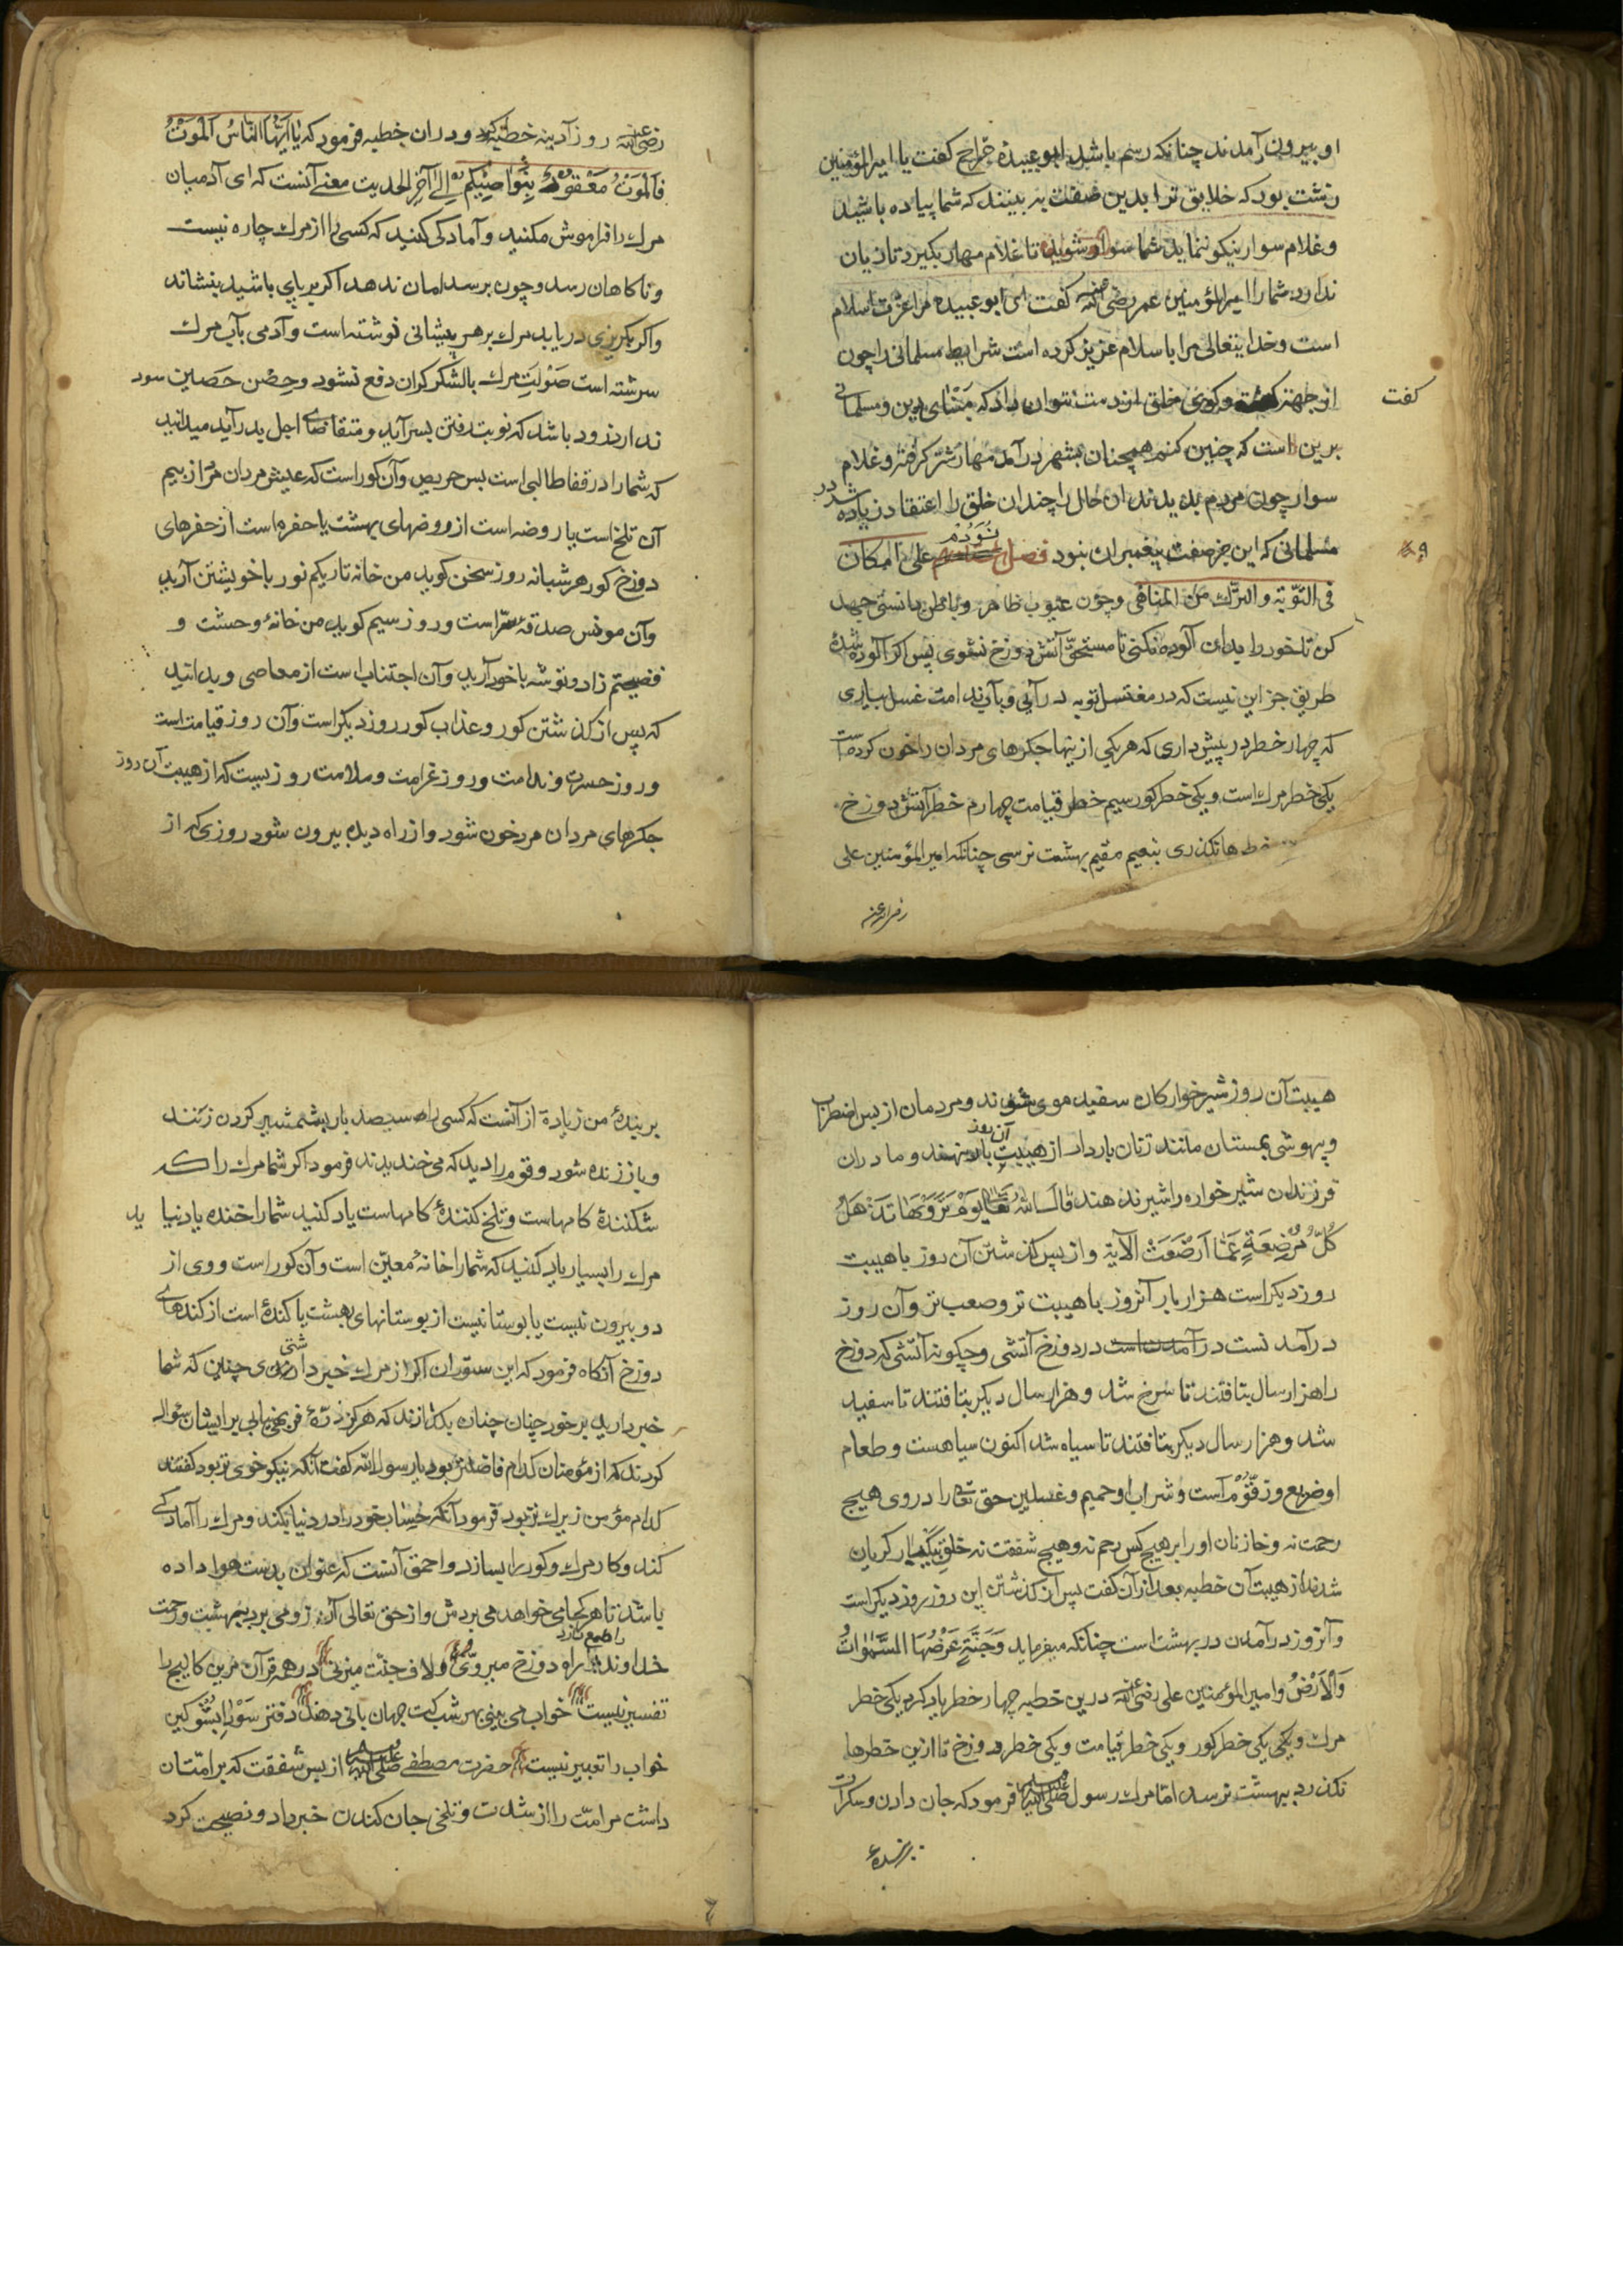 او بیرون آمدند چنانکه رسم باشد ابو عبیده جراح کفت یا امیرالمؤمنین
زشت بود که خلایق ترا بدین صفت به بینند که شما پیاده باشید
و غلام سوار نیکو ننماید شما سوار شوید تا غلام مهار بکیرد تا زیان
ندارد شما را امیرالمؤمنین عمر رضی الله عنه کفت ای ابو عبیده مرا عزت اسلام
است و خداینعالی مرا باسلام عزیز کرده است شرایط مسلمانی را چون
از جهت کفت و کوی خلق از دست توان داد که مبنای دین و مسلمانی
کفت
برین است که چنین کنم همچنان بشهر درآمد مهار شتر کرفته و غلام
سوار چون مردم بدیدند ان حال را چندان خلق را اعتقاد زیاده شد در
مسلمانی که این جز صفت پیغمبران نبود فصل نودم علی امکان
فی التوبة والترک من المناهی و چون عیوب ظاهر و باطن دانستی جهد
کن تا خود را بدان آلوده نکنی تا مستحق آتش دوزخ نشوی پس اکر آلوده شدۀ
طریق جز این نیست که در مغتسل توبه در آیی و بآب ندامت غسل بیاری
که چهار خطر در پیش داری که هر یکی از ینها جکرهای مردان را خون کرده است
یکی خطر مرک است و یکی خطر کور سیم خطر قیامت چهارم خطر آتش دوزخ
خطرها نکذری بنعیم مقیم بهشت نرسی چنانکه امیرالمؤمنین علی
رضی الله عنه
رضی الله عنه روز آدینه خطبه کرد و دران خطبه فرمود که یا ایها الناس الموت
فالموت معقود بنواصیکم الی آخر الحدیث معنی آنست که ای آدمیان
مرک را فراموش مکنید و آمادکی کنید که کسی را از مرک چاره نیست
و ناکاهان رسد و چون برسد امان ندهد اکر برپای باشید بنشاند
و اکر بکریزی دریابد مرک بر هر پیشانی نوشته است و آدمی بآب مرک
سرشته است صولت مرک بالشکر کران دفع نشود و حصن حصاین سود
ندارد زود باشد که نوبت رفتن بسر آید و متقاضای اجل بدر آید میدانید
که شما را در قفا طالبی است بس حریص و آن کور است که عیش مردان مر از بیم
آن تلخ است یا روضه است از روضهای بهشت یا حفره است از حفرهای
دوزخ کور هر شبانه روز سخن کوید من خانه تاریکم نور با خویشتن آرید
و آن مونس صدقۀ سر است و روز سیم کوید من خانۀ وحشت و
فضیحتم زاد و توشه با خود آرید و آن اجتناب است از معاصی و بدانید
که پس از کذشتن کور و عذاب کور روز دیکر است و آن روز قیامت است
و روز حسرت و ندامت و روز غرامت و ملامت روزیست که از هیبت آن روز
جکرهای مردان مرد خون شود و از راه دیده بیرون شود روزی که از
هیبت آن روز شیرخوارکان سفید موی شوند و مردمان از بس اضطراب
و بیهوشی بمستان مانند زنان باردار از هیبت آن روز بار بنهند و مادران
فرزندان شیر خواره را شیر ندهند قال الله تعالی یوم ترونها تذهل
کل مرضعة عما ارضعت الآیة و از پس کذشتن آن روز باهیبت
روز دیکر است هزار بار آنروز باهیبت تر و صعب تر و آن روز
درآمد نست درآمدن است در دوزخ آتشی و چکونه آتشی که دوزخ
را هزار سال بتافتند تا سرخ شد و هزار سال دیکر بتافتند تا سفید
شد و هزار سال دیکر بتافتند تا سیاه شد اکنون سیاهست و طعام
او ضریع و زقوم است و شراب او حمیم و غسلین حق تعالی را در وی هیچ
رحمت نه و خازنان او را بر هیچ کس رحم نه و هیچ شفقت نه خلق بیکبار کریان
شدند از هیبت آن خطبه بعد از آن کفت پس از کذشتن این روز روز دیکر است
و آنروز درآمدن در بهشت است چنانکه میفرماید وجنة عرضها السموات
والارض و امیرالمؤمنین علی رضی الله عنه درین خطبه چهار خطر یاد کرد یکی خطر
مرک و یکی یکی خطر کور و یکی خطر قیامت و یکی خطر دوزخ تا ازین خطرها
نکذرد ببهشت نرسد اما مرک رسول صلی الله علیه وسلم فرمود که جان دادن و سکرات
برندۀ
بر بندۀ من زیادة از آنست که کسی را سیصد بار بشمشیر کردن زنند
و باز زنده شود و قوم را دید که می خندیدند فرمود اکر شما مرک را که
شکنندۀ کامهاست و تلخ کنندۀ کامهاست یاد کنید شما را خنده یاد نیاید
مرک را بسیار یاد کنید که شما را خانۀ معین است و آن کور است و وی از
دو بیرون نیست یا بوستانیست از بوستانهای بهشت یا کندۀ است از کندهای
دوزخ آنکاه فرمود که این ستوران اکر از مرک خبر داشتی چنین که شما
خبر دارید بر خود چنان چنان بکدازند که هرکز ذرۀ فربهی نیابی بر ایشان سؤال
کردند که از مؤمنان کدام فاضلتر بود یا رسول الله کفت آنکه نیکو خوی تر بود کفتند
کدام مؤمن زیرک تر بود فرمود آنکه حساب خود را در دنیا بکند و مرک را آمادکی
کند و کار مرک و کور را بسازد و احمق آنست که عنوان بدست هوا داده
باشد تا هر کجا می خواهد می بردش و از حق تعالی آرزو می برد بهشت و رحمت
را طمع دارد
خداوندا راه دوزخ میروی و لاف جنت میزنی در همه قرآن مبین کاین را
تفسیر نیست خواب می بینی بهر شب کت جهان یاتی دهند دفتر سورا بشو کین
خواب را تعبیر نیست حضرت مصطفی صلی الله علیه وسلم از بس شفقت که بر امتان
داشت مر امت را از شدت و تلخی جان کندن خبر داد و نصیحت کرد